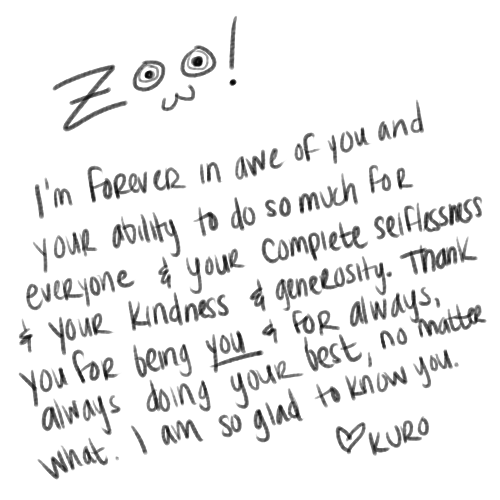 Zoo!
I'm forever in awe of you and
your ability to do so much for
everyone & your complete selflessness
& your kindness & generosity. Thank
you for being you & for always,
always doing your best, no matter
what. I am so glad to know you.
♡ KURO